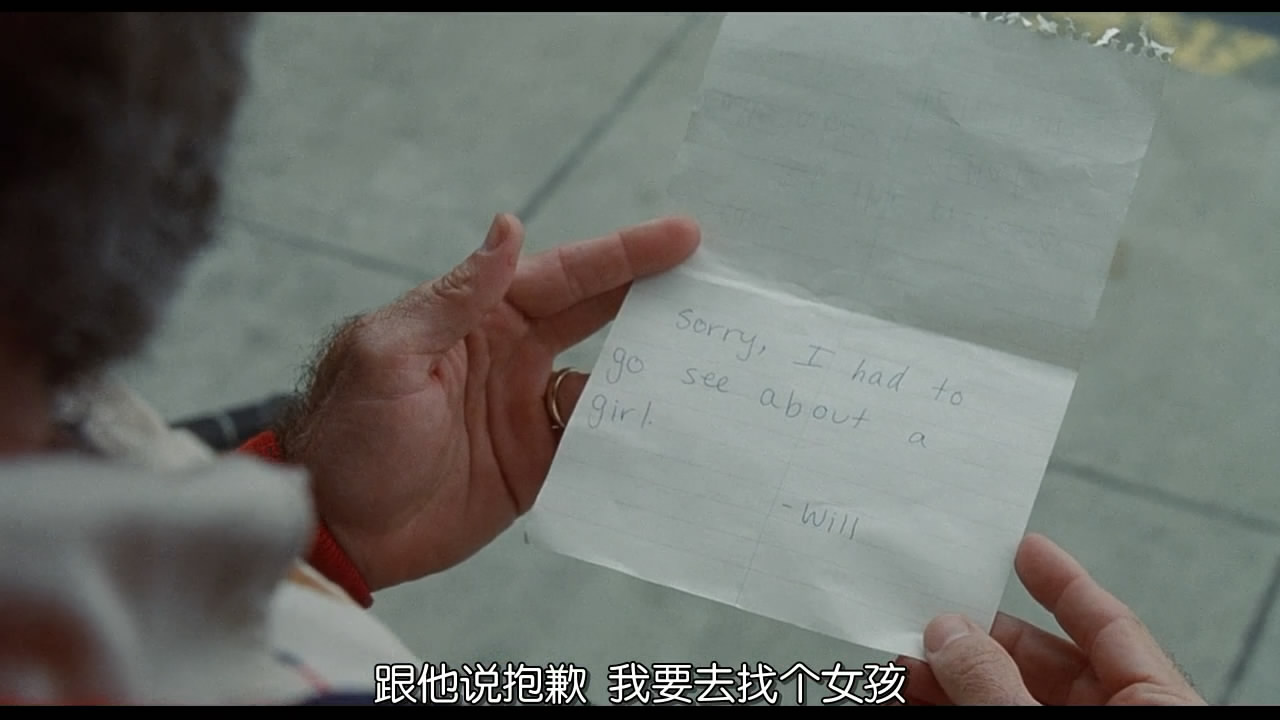 Sorry, I had to
go see about a
girl.
-Will
跟他说抱歉 我要去找个女孩